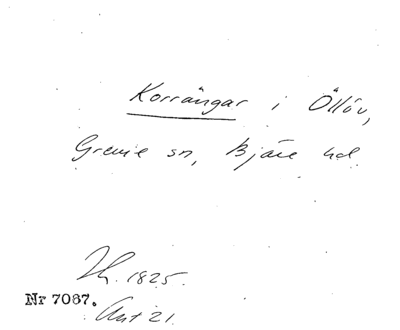 Korrängar i Öllöv,
Grevie sn, Bjäre hd
Lh. 1825.
Nr 7087.
Akt 21.